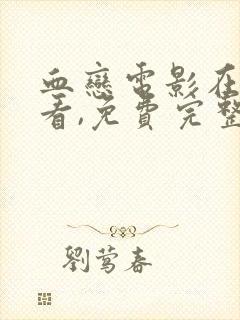 血戀電影在
看,免費完整
劉莺春